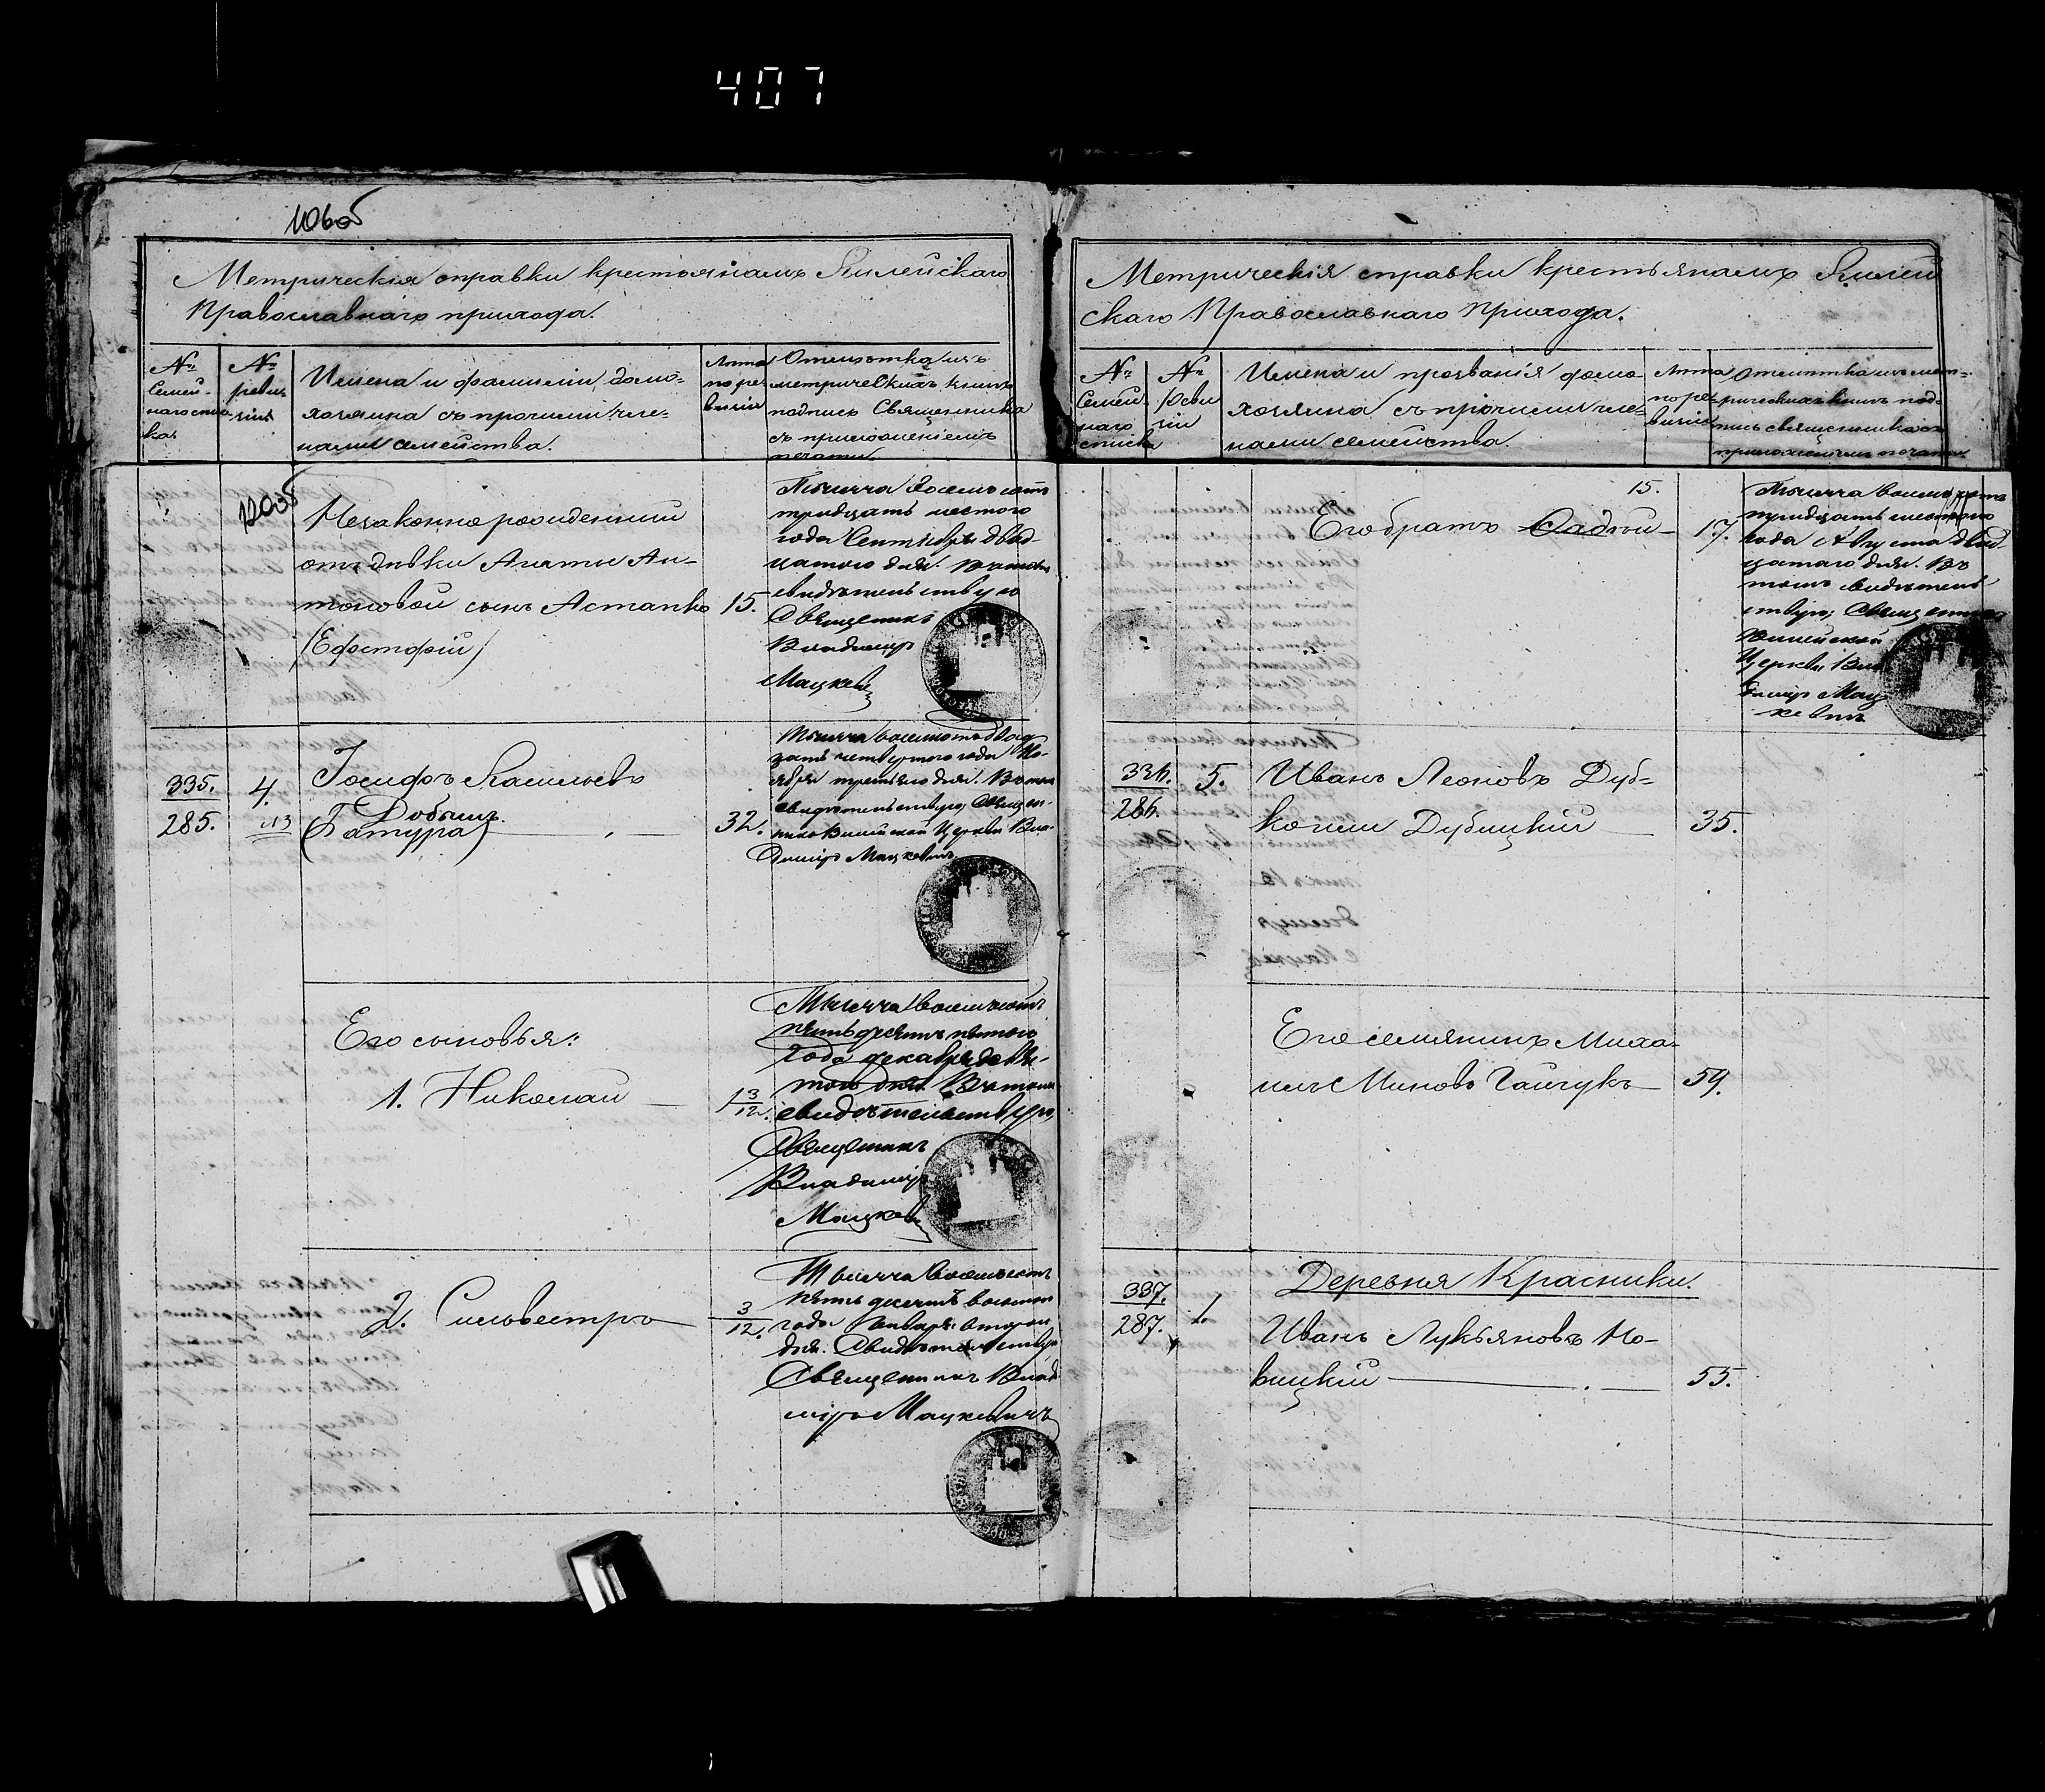 407
106об
Метрическія справки крестьянамъ Килейскаго
Православнаго прихода.
№
Семей-
наго спис-
ка
№
реви-
зіи
Имена и фамиліи домо-
хозяина съ прочими чле-
нами семейства.
Лѣта
по ре-
визіи
Отмѣтка изъ
метрическихъ книгъ
подпись Священника
съ приложеніемъ
печати.
120об
Незаконнорожденный
отъ дѣвки Агаты Ан-
тоновой сынъ Астапко
(Ефстафій)
15.
Тысяча восемьсотъ
тридцать шестого
года Сентября двад-
цатого дня. Въ томъ
свидѣтельствую
Священникъ
Владиміръ
Мацкеви
335.
285.
4.
113
Іосифъ Васильевъ
Добышъ
(Батура)
32.
Тысяча восемьсотъ двад
цать четвертого года Но-
ября третьяго дня. Въ томъ
свидѣтельствую, Священ-
никъ Килейской Церкви Вла-
диміръ Мацкевичъ
Его сыновья:
1. Николай
1 3/12.
Тысяча восемьсотъ
пятьдесятъ пятого
года декабря девя-
того дня. Въ томъ
свидѣтельствую,
Священникъ
Владиміръ
Мацкеви
2. Сильвестръ
3/12.
Тысяча восемьсотъ
пятьдесятъ восьмого
года Января второго
дня. Свидѣтельствую
Священникъ Влад
міръ Мацкевичъ
Метрическія справки крестьянамъ Килей
скаго Православнаго Прихода.
№
Семей
наго
списка
№
Реви
зіи
Имена и прозванія домо-
хозяина съ прочими чле-
нами семейства
Лѣта
по ре-
визіи
Отмѣтка изъ мет-
рическихъ книгъ под-
пись священника съ
приложеніемъ печати
15.
Его братъ Фадѣй
17.
Тысяча восемьсотъ
тридцать шестого
года Августа двад-
цатаго дня. Въ
томъ свидѣтель-
ствую, Священникъ
Килейской
Церкви Вла
диміръ Мац
кевичъ
336.
286.
5.
Иванъ Леоновъ Дуб-
Дубицкій
35.
Его семянинъ Миха-
илъ Миновъ Гайчукъ
59.
337.
287.
1.
Деревня Красники.
Иванъ Лукьяновъ Но-
вицкій
55.